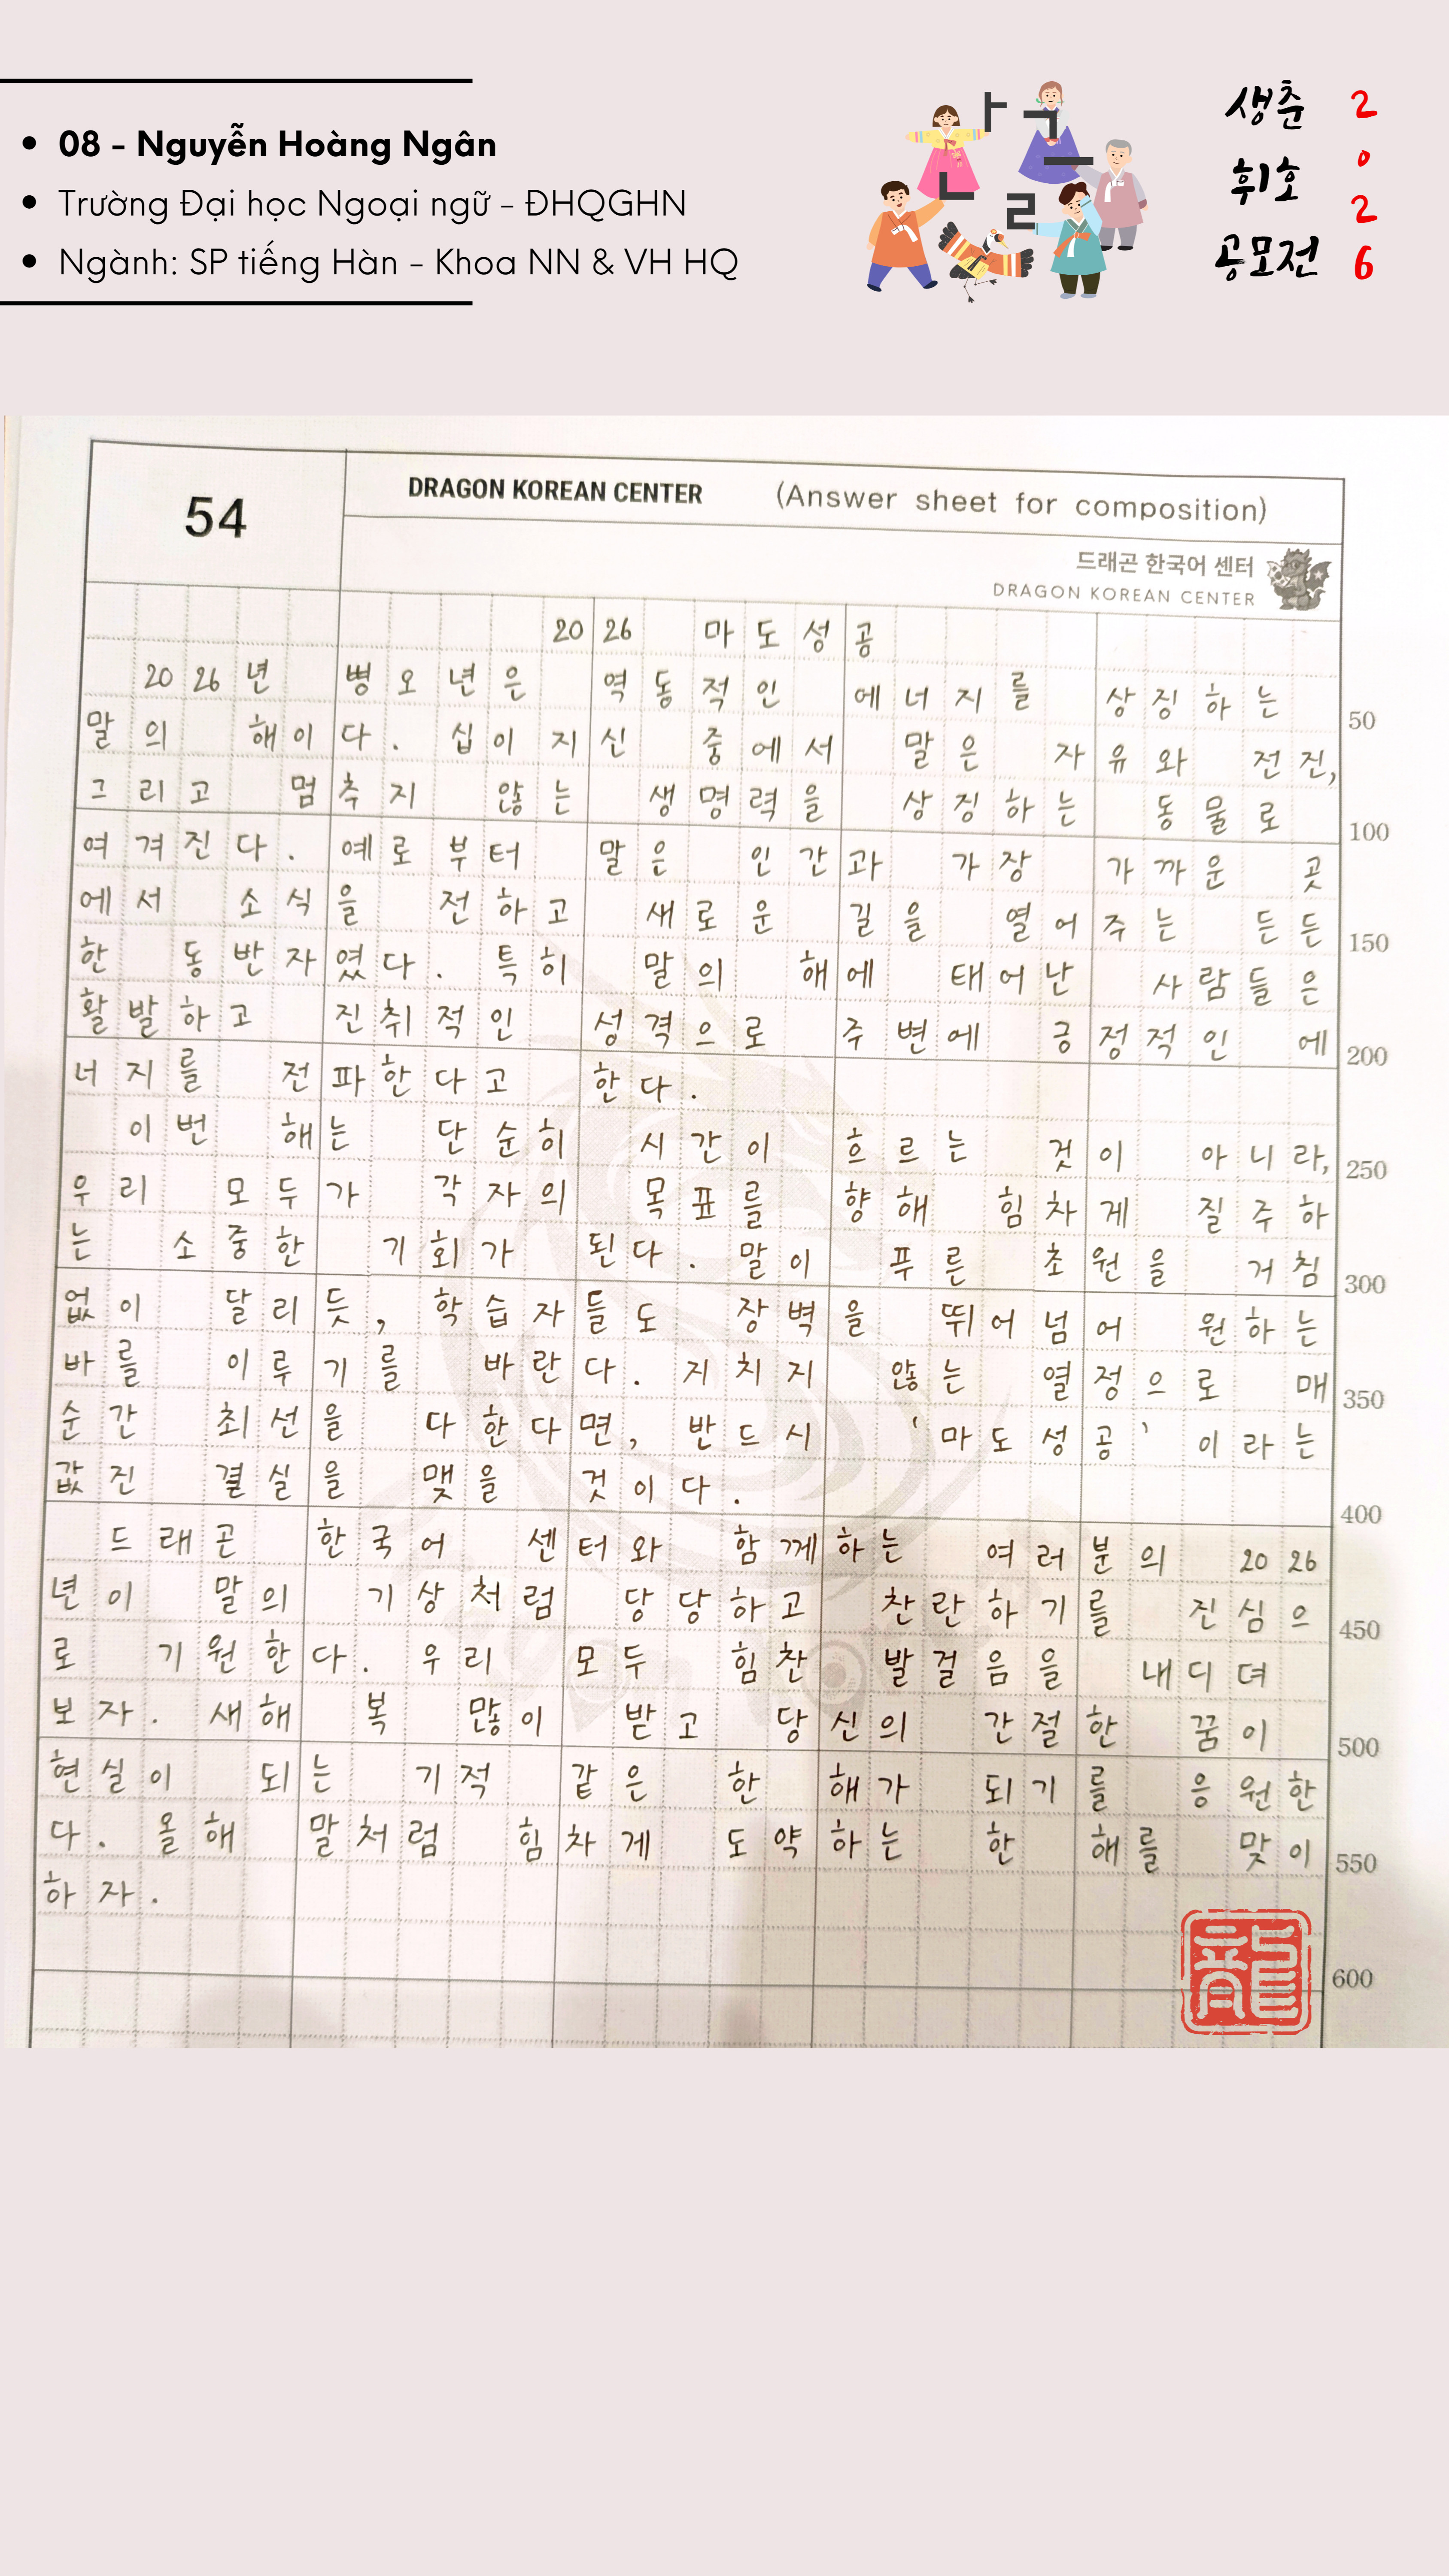 08 - Nguyễn Hoàng Ngân
Trường Đại học Ngoại ngữ - ĐHQGHN
Ngành: SP tiếng Hàn - Khoa NN & VH HQ
ㅏ ㄱ ㅡ ㄴ ㄹ
생춘 2
휘호 0
2
공모전 6
54
DRAGON KOREAN CENTER (Answer sheet for composition)
드래곤 한국어 센터
DRAGON KOREAN CENTER
2026 마도성공
2026년 병오년은 역동적인 에너지를 상징하는
말의 해이다. 십이지신 중에서 말은 자유와 전진, 50
그리고 멈추지 않는 생명력을 상징하는 동물로
여겨진다. 예로부터 말은 인간과 가장 가까운 곳 100
에서 소식을 전하고 새로운 길을 열어주는 든든
한 동반자였다. 특히 말의 해에 태어난 사람들은 150
활발하고 진취적인 성격으로 주변에 긍정적인 에
너지를 전파한다고 한다. 200
이번 해는 단순히 시간이 흐르는 것이 아니라,
우리 모두가 각자의 목표를 향해 힘차게 질주하 250
는 소중한 기회가 된다. 말이 푸른 초원을 거침
없이 달리듯, 학습자들도 장벽을 뛰어넘어 원하는 300
바를 이루기를 바란다. 지치지 않는 열정으로 매
순간 최선을 다한다면, 반드시 '마도성공'이라는 350
값진 결실을 맺을 것이다.
드래곤 한국어 센터와 함께하는 여러분의 2026 400
년이 말의 기상처럼 당당하고 찬란하기를 진심으
로 기원한다. 우리 모두 힘찬 발걸음을 내디뎌 450
보자. 새해 복 많이 받고 당신의 간절한 꿈이
현실이 되는 기적 같은 한 해가 되기를 응원한 500
다. 올해 말처럼 힘차게 도약하는 한 해를 맞이
하자. 550
龍
600